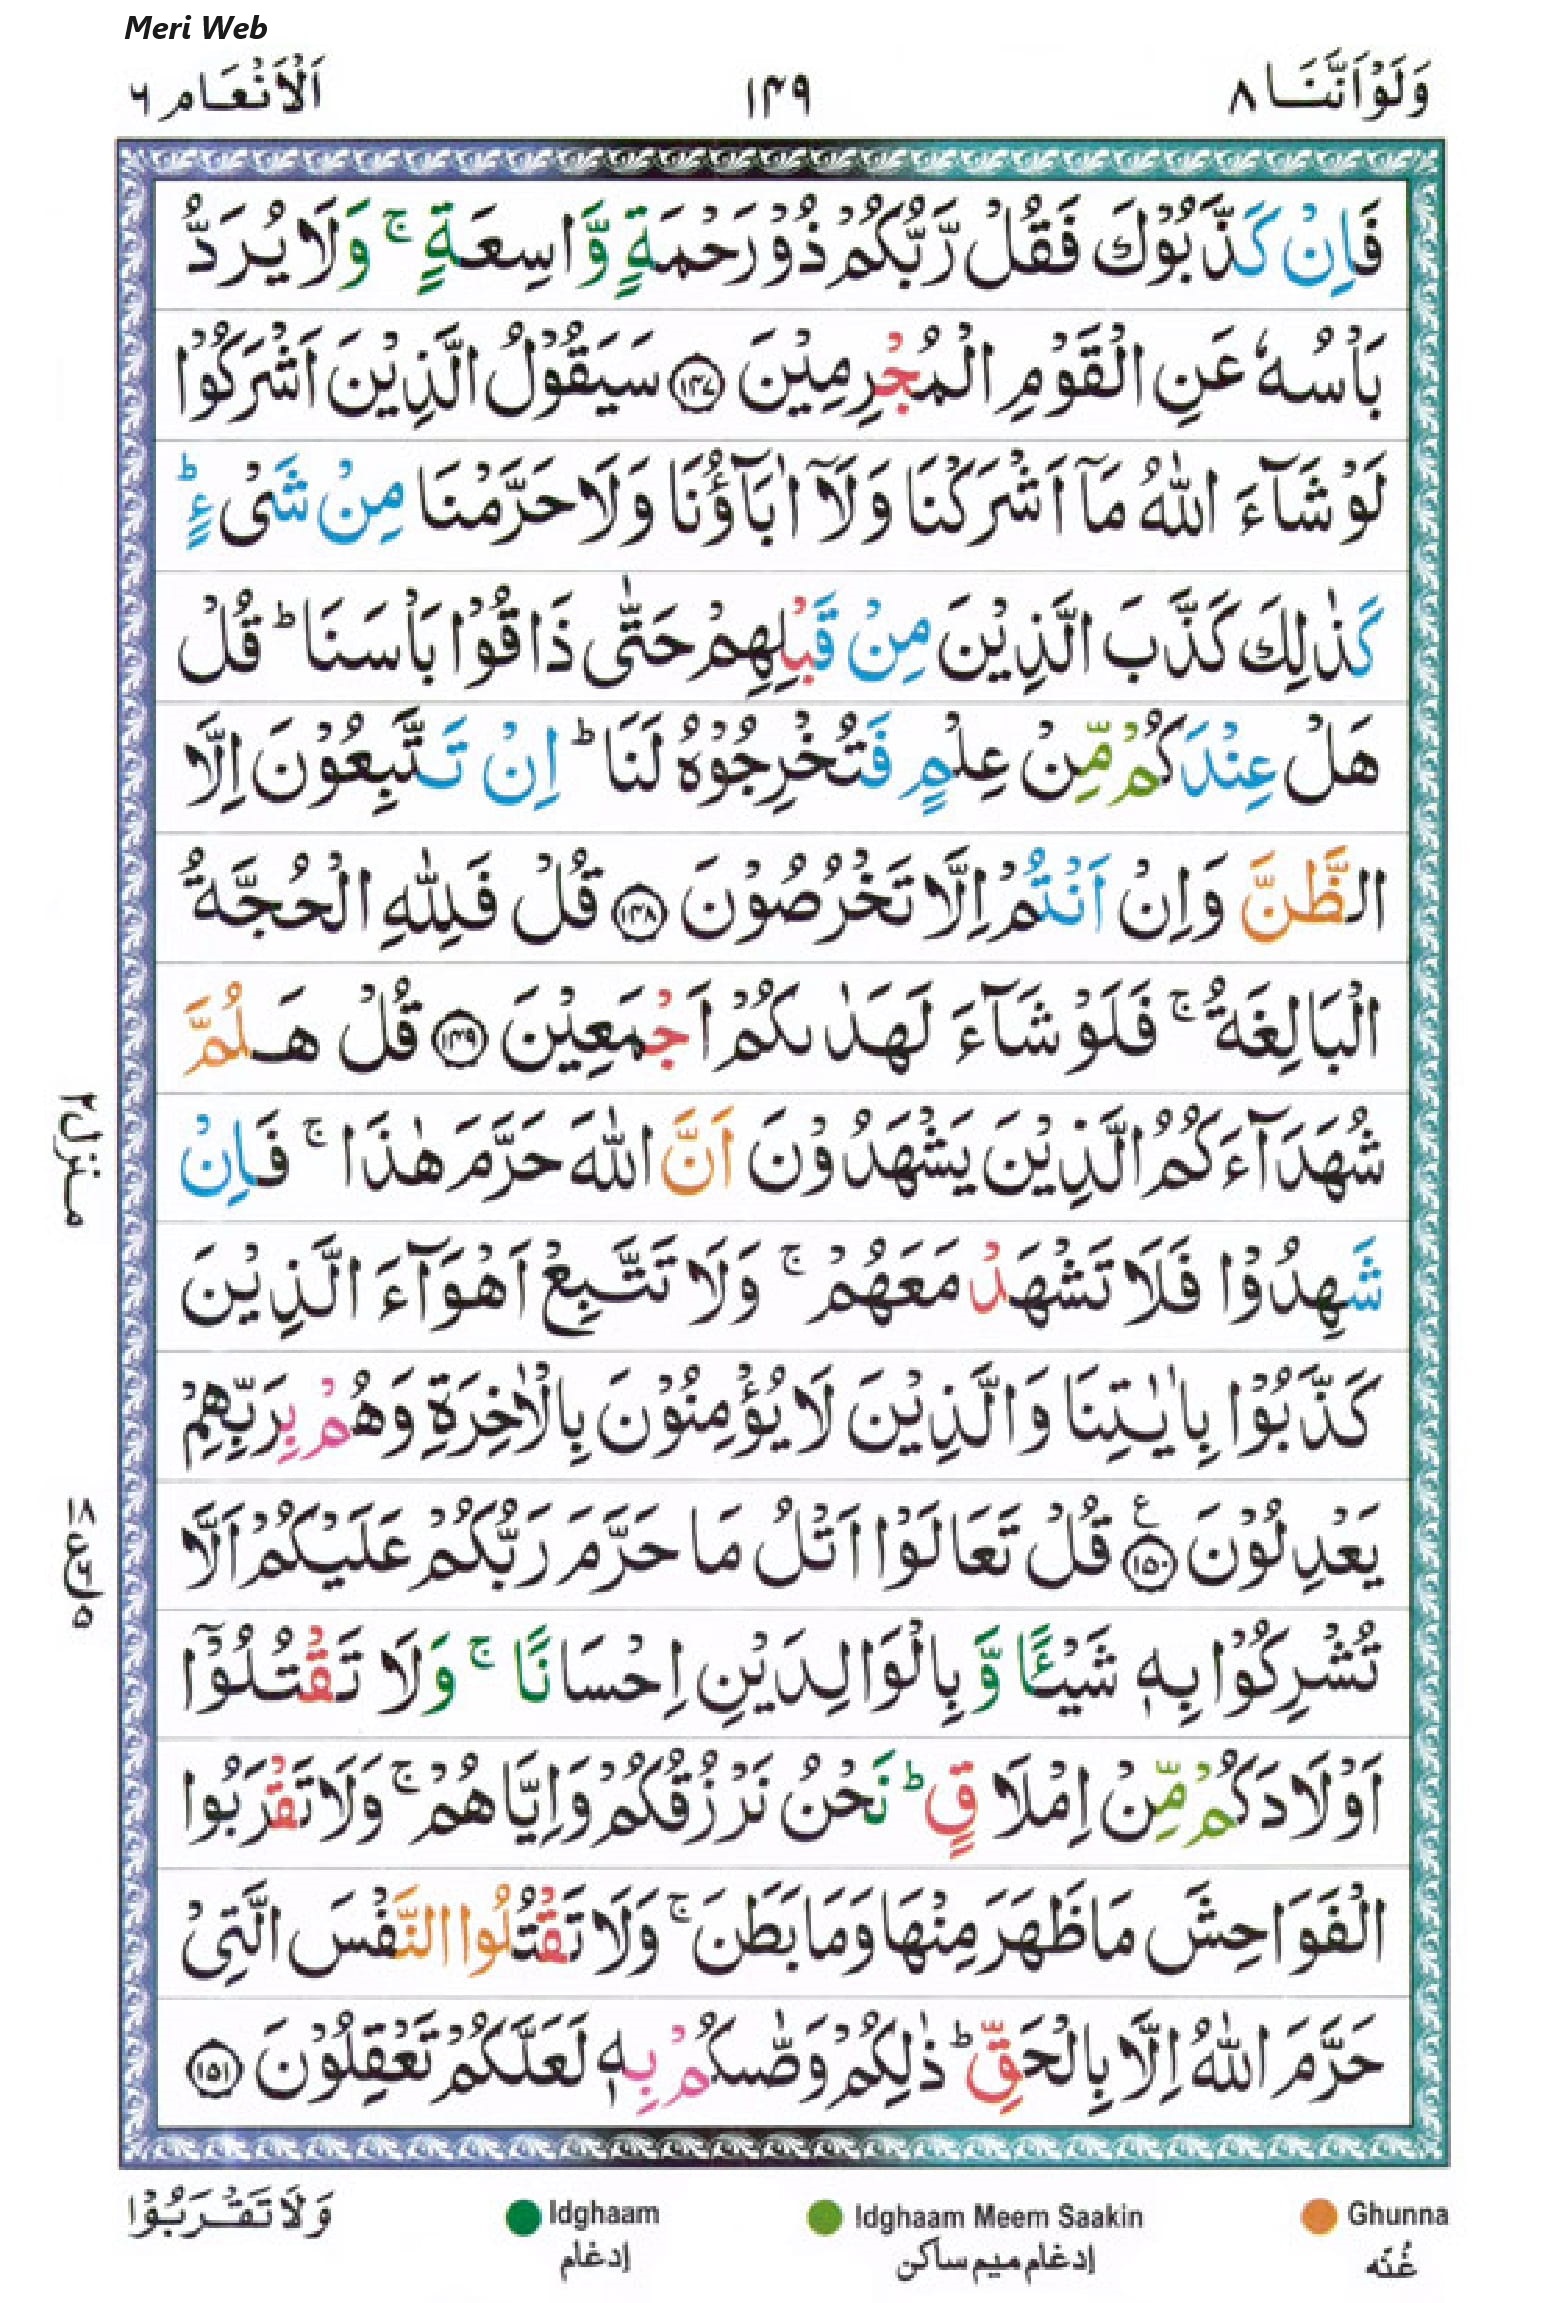 Meri Web
وَلَوْ اَنَّنَا ٨
١٤٩
اَلْاَنْعَام ٦
فَاِنْ كَذَّبُوْكَ فَقُلْ رَّبُّكُمْ ذُوْ رَحْمَةٍ وَّاسِعَةٍ ۚ وَلَا يُرَدُّ
بَاْسُهٗ عَنِ الْقَوْمِ الْمُجْرِمِيْنَ ﴿١٤٧﴾ سَيَقُوْلُ الَّذِيْنَ اَشْرَكُوْا
لَوْ شَآءَ اللّٰهُ مَآ اَشْرَكْنَا وَلَآ اٰبَآؤُنَا وَلَا حَرَّمْنَا مِنْ شَىْءٍ ؕ
كَذٰلِكَ كَذَّبَ الَّذِيْنَ مِنْ قَبْلِهِمْ حَتّٰى ذَاقُوْا بَاْسَنَا ؕ قُلْ
هَلْ عِنْدَكُمْ مِّنْ عِلْمٍ فَتُخْرِجُوْهُ لَنَا ؕ اِنْ تَتَّبِعُوْنَ اِلَّا
الظَّنَّ وَاِنْ اَنْتُمْ اِلَّا تَخْرُصُوْنَ ﴿١٤٨﴾ قُلْ فَلِلّٰهِ الْحُجَّةُ
الْبَالِغَةُ ۚ فَلَوْ شَآءَ لَهَدٰىكُمْ اَجْمَعِيْنَ ﴿١٤٩﴾ قُلْ هَلُمَّ
شُهَدَآءَكُمُ الَّذِيْنَ يَشْهَدُوْنَ اَنَّ اللّٰهَ حَرَّمَ هٰذَا ۚ فَاِنْ
شَهِدُوْا فَلَا تَشْهَدْ مَعَهُمْ ۚ وَلَا تَتَّبِعْ اَهْوَآءَ الَّذِيْنَ
كَذَّبُوْا بِاٰيٰتِنَا وَالَّذِيْنَ لَا يُؤْمِنُوْنَ بِالْاٰخِرَةِ وَهُمْ بِرَبِّهِمْ
يَعْدِلُوْنَ ﴿١٥٠﴾ ع قُلْ تَعَالَوْا اَتْلُ مَا حَرَّمَ رَبُّكُمْ عَلَيْكُمْ اَلَّا
تُشْرِكُوْا بِهٖ شَيْـًٔا وَّ بِالْوَالِدَيْنِ اِحْسَانًا ۚ وَلَا تَقْتُلُوْٓا
اَوْلَادَكُمْ مِّنْ اِمْلَاقٍ ؕ نَحْنُ نَرْزُقُكُمْ وَاِيَّاهُمْ ۚ وَلَا تَقْرَبُوا
الْفَوَاحِشَ مَا ظَهَرَ مِنْهَا وَمَا بَطَنَ ۚ وَلَا تَقْتُلُوا النَّفْسَ الَّتِىْ
حَرَّمَ اللّٰهُ اِلَّا بِالْحَقِّ ؕ ذٰلِكُمْ وَصّٰىكُمْ بِهٖ لَعَلَّكُمْ تَعْقِلُوْنَ ﴿١٥١﴾
منزل ٢
وَلَا تَقْرَبُوْا
Idghaam
إدغام
Idghaam Meem Saakin
إدغام ميم ساكن
Ghunna
غُنّه